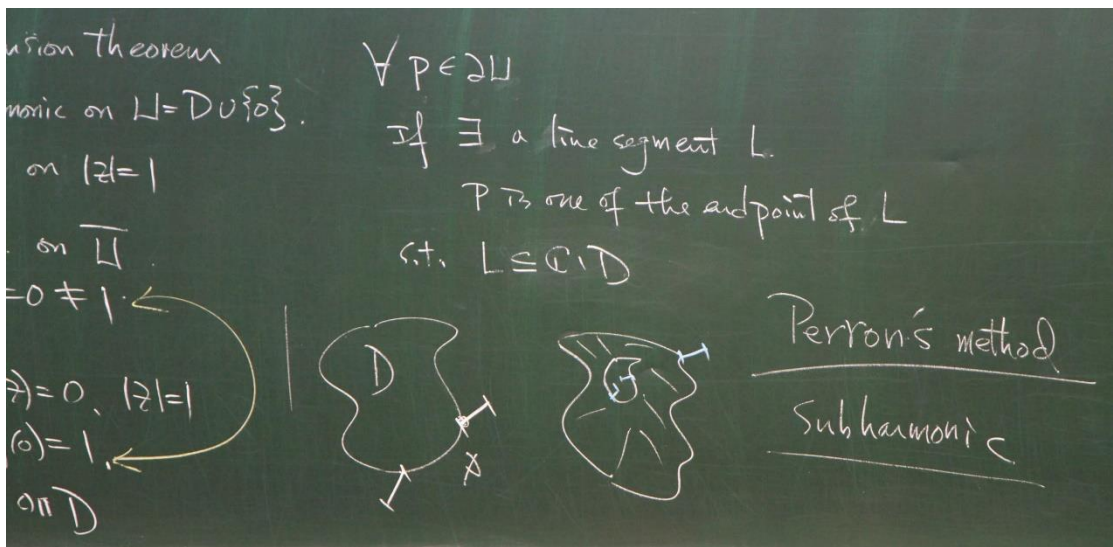 nsion theorem
monic on U = D ∪ {0}.
on |z| = 1
. on U̅.
= 0 ≠ 1.
z) = 0, |z| = 1
(0) = 1.
on D
∀ p ∈ ∂U
If ∃ a line segment L.
P is one of the endpoint of L
s.t. L ⊆ ℂ \ D
D
p
Perron's method
Subharmonic